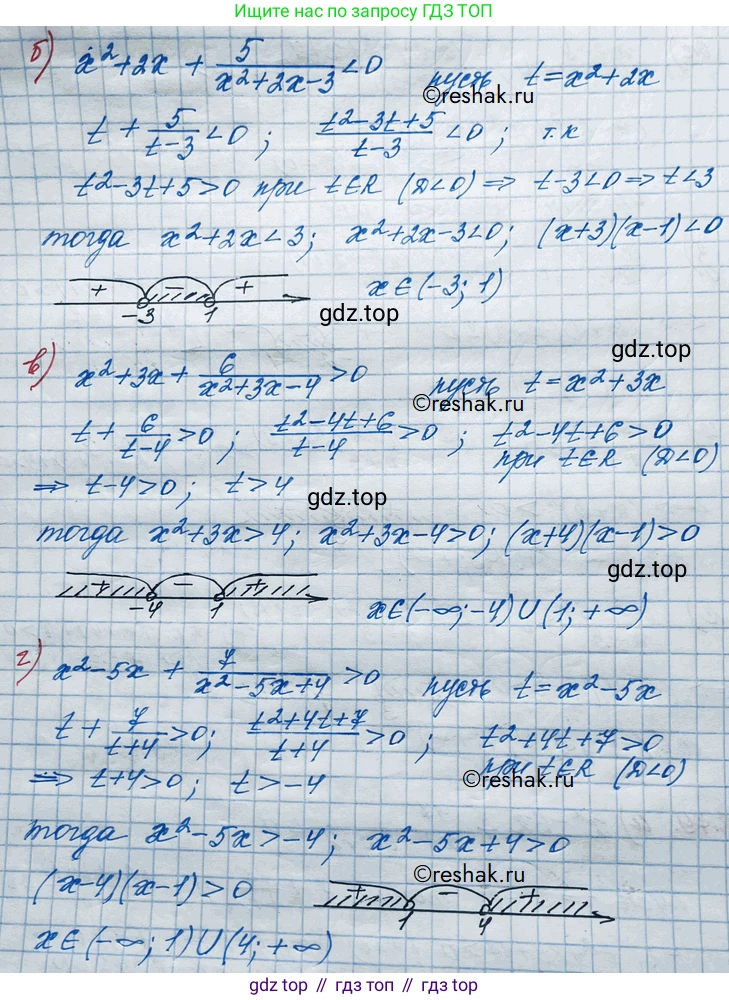 Ищите нас по запросу ГДЗ ТОП
б) x²+2x + 5/(x²+2x-3) <0 пусть t=x²+2x
©reshak.ru
t + 5/(t-3) <0; (t²-3t+5)/(t-3) <0; т.к
t²-3t+5>0 при t∈R (D<0) ⇒ t-3<0 ⇒ t<3
тогда x²+2x<3; x²+2x-3<0; (x+3)(x-1)<0
+ - + x∈(-3; 1)
-3 1
gdz.top
gdz.top
в) x²+3x + 6/(x²+3x-4) >0 пусть t=x²+3x
©reshak.ru
t + 6/(t-4) >0; (t²-4t+6)/(t-4) >0; t²-4t+6>0
при t∈R (D<0)
⇒ t-4>0; t>4
gdz.top
тогда x²+3x>4; x²+3x-4>0; (x+4)(x-1)>0
gdz.top
+ - +
-4 1
x∈(-∞;-4)∪(1;+∞)
г) x²-5x + 7/(x²-5x+4) >0 пусть t=x²-5x
t + 7/(t+4) >0; (t²+4t+7)/(t+4) >0; t²+4t+7>0
при t∈R (D<0)
©reshak.ru
⇒ t+4>0; t>-4
тогда x²-5x>-4; x²-5x+4>0
©reshak.ru
(x-4)(x-1)>0
+ - +
1 4
x∈(-∞;1)∪(4;+∞)
gdz.top // гдз топ // гдз.топ